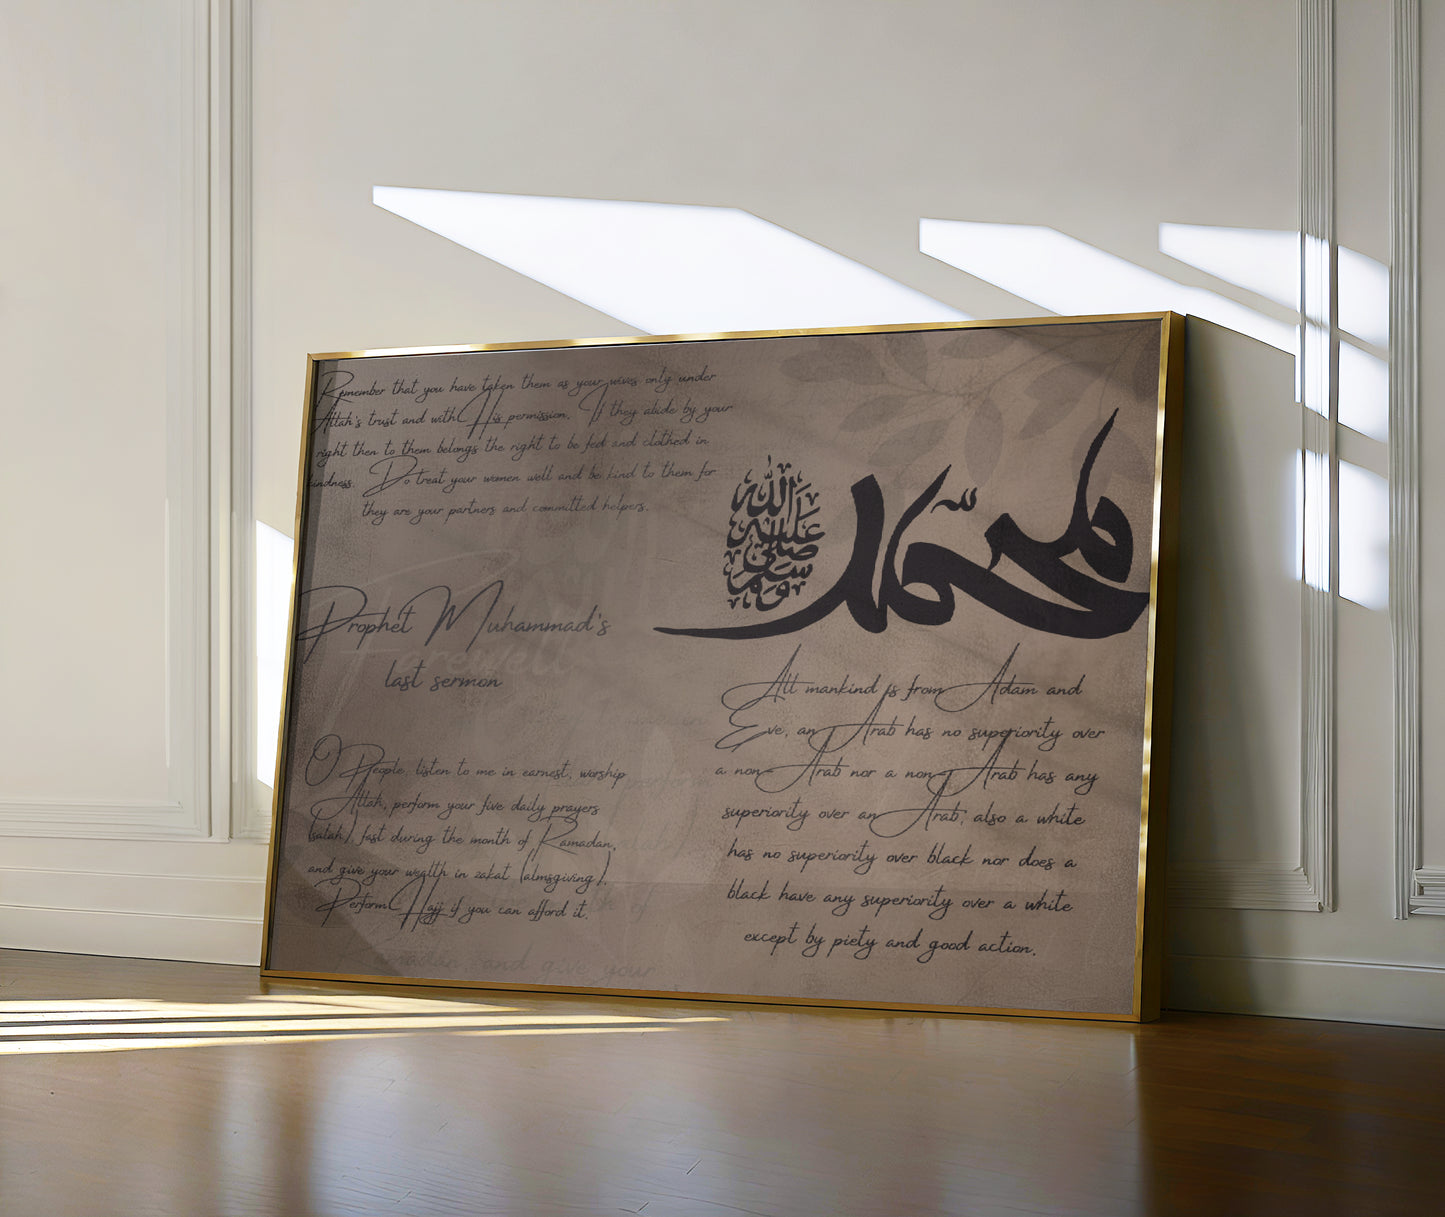 Remember that you have taken them as your wives only under
Allah's trust and with His permission. If they abide by your
right then to them belongs the right to be fed and clothed in
kindness. Do treat your women well and be kind to them for
they are your partners and committed helpers.
Prophet Muhammad's
Farewell
last sermon
O People, listen to me in earnest, worship
Allah, perform your five daily prayers
(salah), fast during the month of Ramadan,
and give your wealth in zakat (almsgiving).
Perform Hajj if you can afford it.
Ramadan, and give your
محمد
صلى الله عليه وسلم
All mankind is from Adam and
Eve, an Arab has no superiority over
a non-Arab nor a non-Arab has any
superiority over an Arab; also a white
has no superiority over black nor does a
black have any superiority over a white
except by piety and good action.